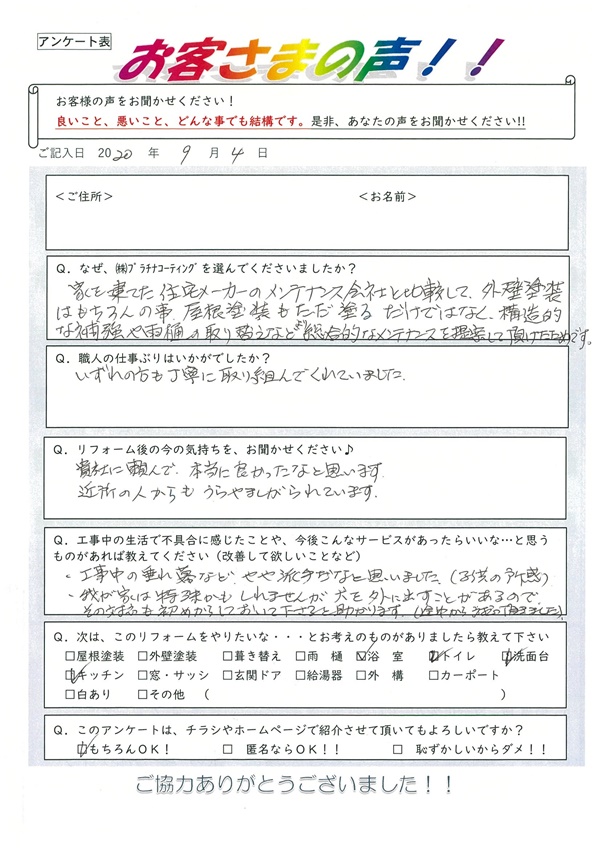 アンケート表
お客さまの声！！
お客様の声をお聞かせください！
良いこと、悪いこと、どんな事でも結構です。是非、あなたの声をお聞かせください!!
ご記入日 2020 年 9 月 4 日
＜ご住所＞ ＜お名前＞
Q．なぜ、㈱ﾌﾟﾗﾁﾅｺｰﾃｨﾝｸﾞを選んでくださいましたか？
家を建てた住宅メーカーのメンテナンス会社と比較して、外壁塗装
はもちろんの事、屋根塗装もただ塗るだけではなく、構造的
な補強や雨樋の取り替えなど総合的なメンテナンスを提案して頂けたためです。
Q．職人の仕事ぶりはいかがでしたか？
いずれの方も丁寧に取り組んでくれていました。
Q．リフォーム後の今の気持ちを、お聞かせください♪
貴社に頼んで、本当に良かったなと思います。
近所の人からも うらやましがられています。
Q．工事中の生活で不具合に感じたことや、今後こんなサービスがあったらいいな…と思う
ものがあれば教えてください（改善して欲しいことなど）
・工事中の垂れ幕など、やや派手だなと思いました。（子供の予感）
・我が家は特殊かもしれませんが、犬を外に出すことがあるので、
その対応も初めからしておいて下さると助かります。（途中から頂きました）
Q．次は、このリフォームをやりたいな・・・とお考えのものがありましたら教えて下さい
□屋根塗装 □外壁塗装 □葺き替え □雨 樋 ☑浴 室 ☑トイレ ☑洗面台
☑キッチン □窓・サッシ □玄関ドア □給湯器 □外 構 □カーポート
□白あり □その他 （ ）
Q．このアンケートは、チラシやホームページで紹介させて頂いてもよろしいですか？
☑もちろんOK！ □ 匿名ならOK！！ □ 恥ずかしいからダメ！！
ご協力ありがとうございました！！